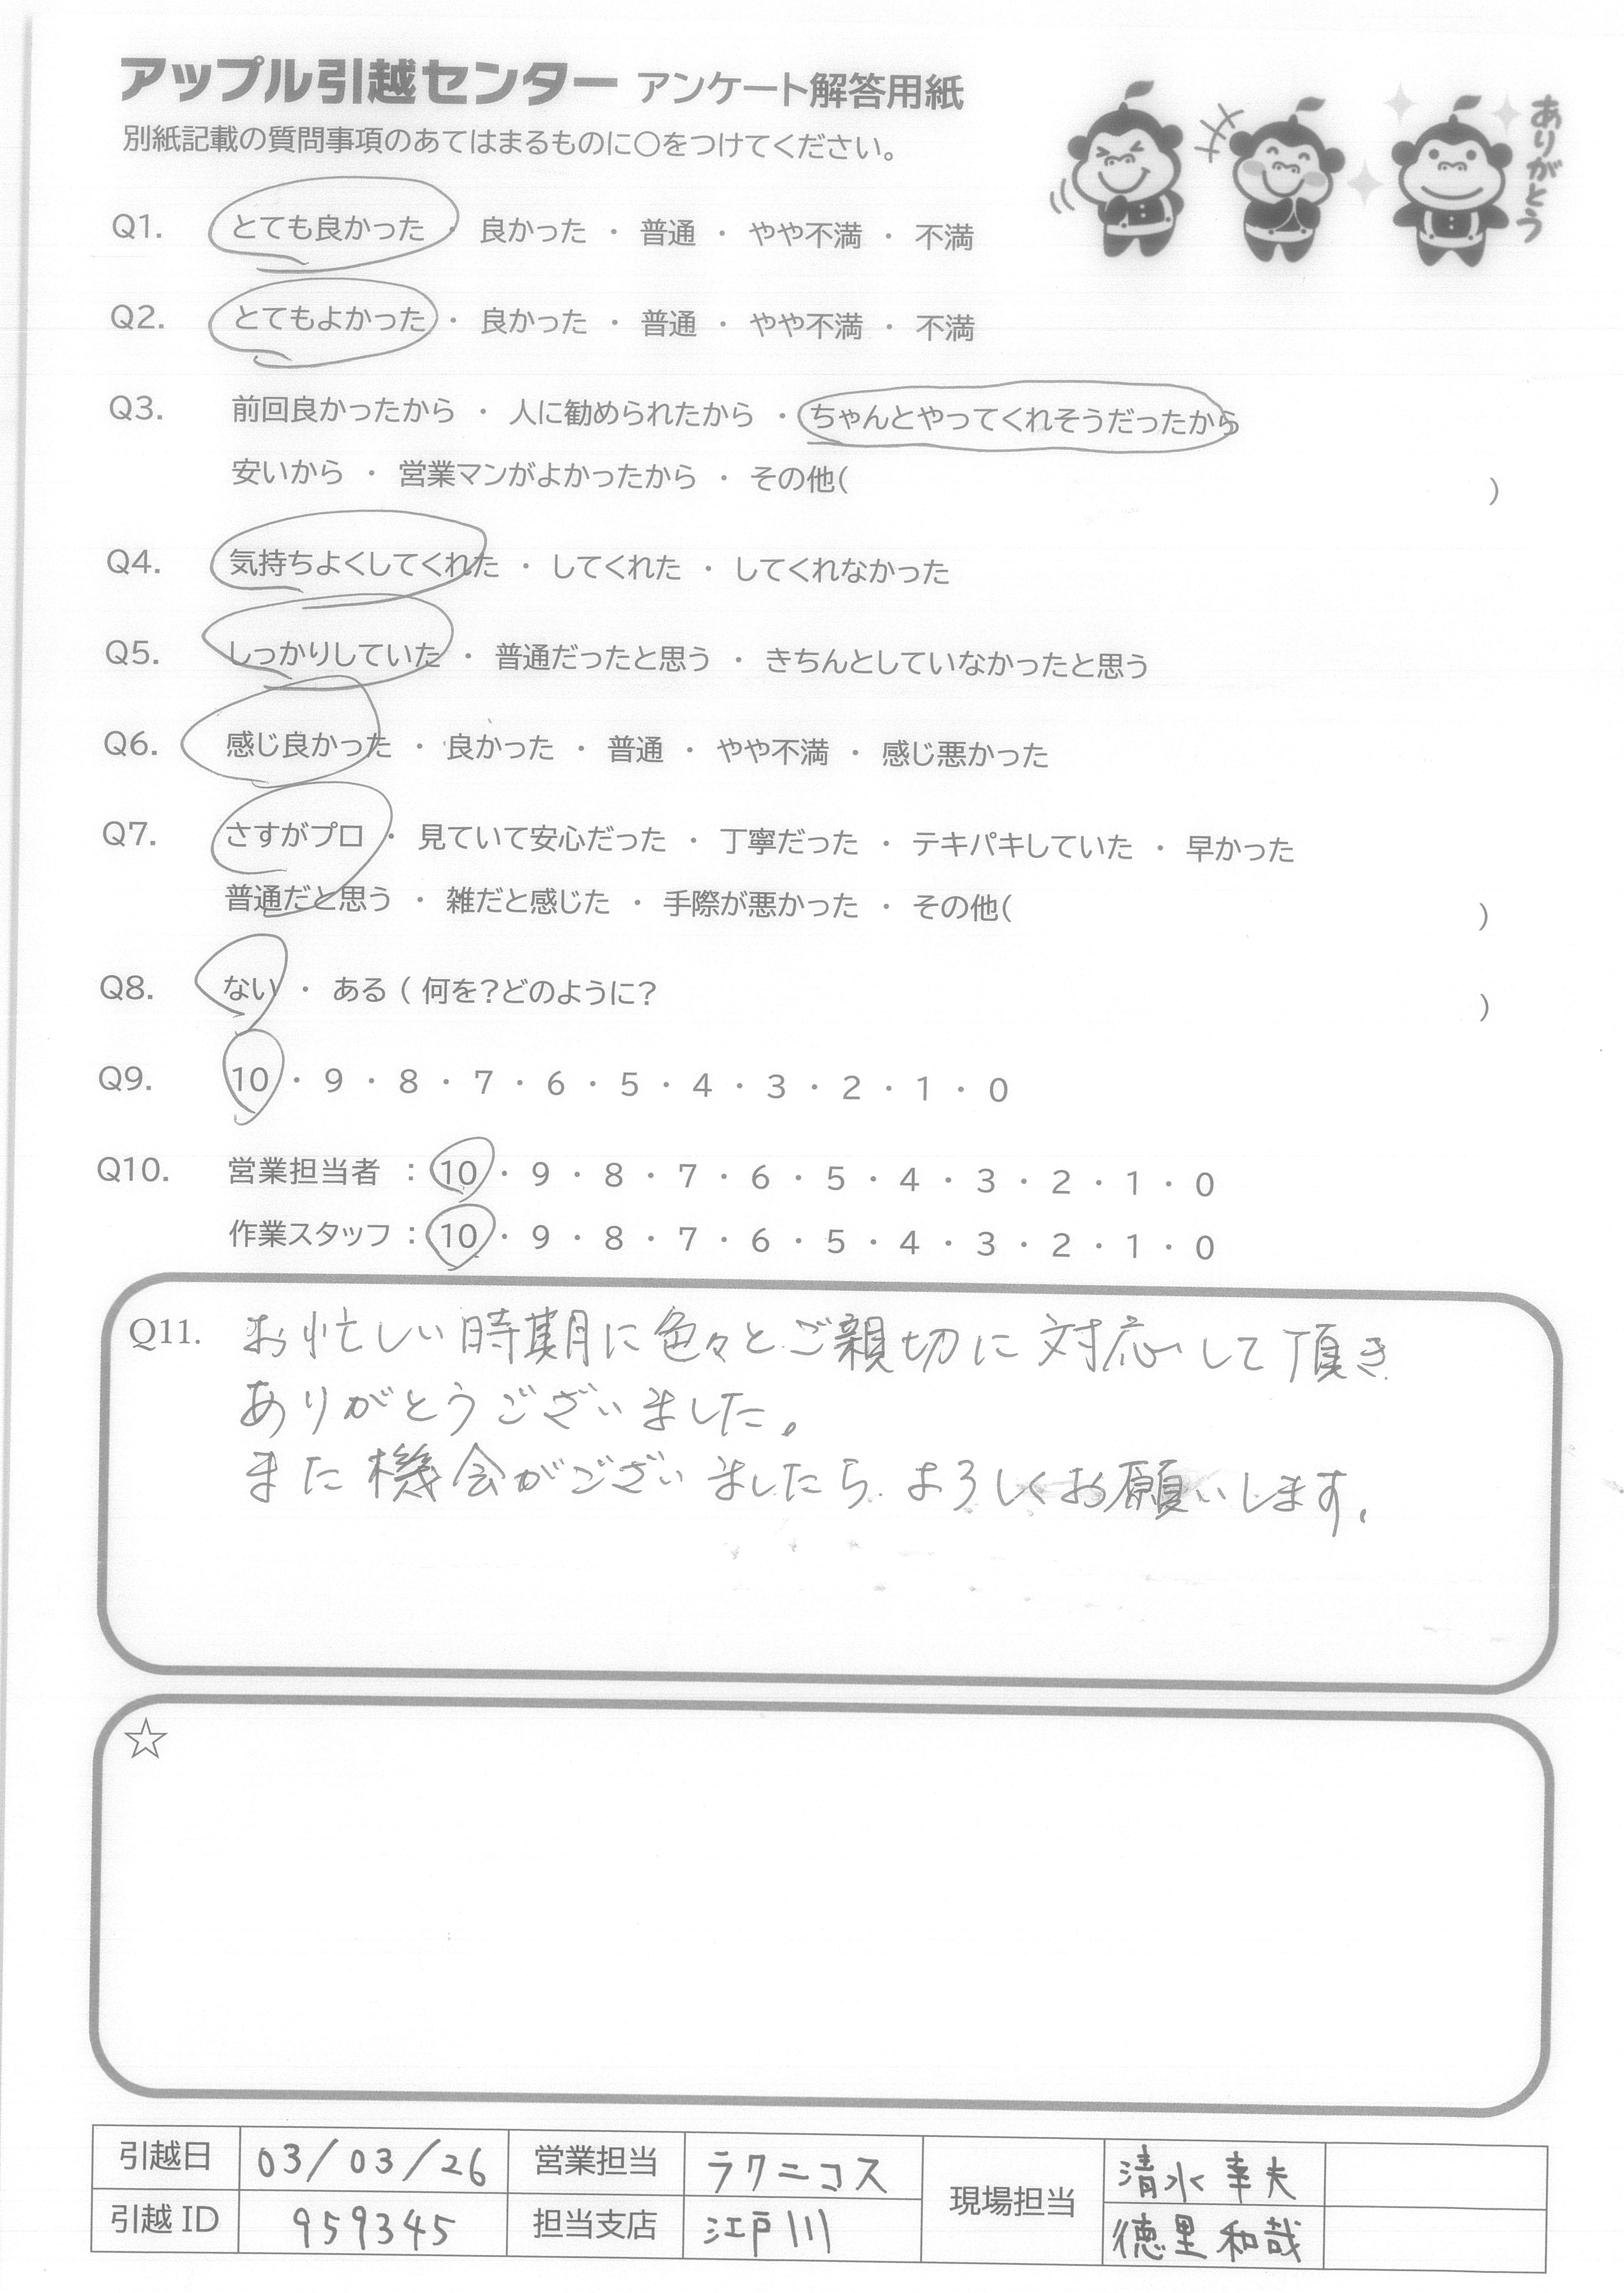 アップル引越センター アンケート解答用紙
別紙記載の質問事項のあてはまるものに〇をつけてください。
ありがとう
Q1. とても良かった ・ 良かった ・ 普通 ・ やや不満 ・ 不満
Q2. とてもよかった ・ 良かった ・ 普通 ・ やや不満 ・ 不満
Q3. 前回良かったから ・ 人に勧められたから ・ ちゃんとやってくれそうだったから
安いから ・ 営業マンがよかったから ・ その他( )
Q4. 気持ちよくしてくれた ・ してくれた ・ してくれなかった
Q5. しっかりしていた ・ 普通だったと思う ・ きちんとしていなかったと思う
Q6. 感じ良かった ・ 良かった ・ 普通 ・ やや不満 ・ 感じ悪かった
Q7. さすがプロ ・ 見ていて安心だった ・ 丁寧だった ・ テキパキしていた ・ 早かった
普通だと思う ・ 雑だと感じた ・ 手際が悪かった ・ その他( )
Q8. ない ・ ある ( 何を?どのように? )
Q9. 10 ・ 9 ・ 8 ・ 7 ・ 6 ・ 5 ・ 4 ・ 3 ・ 2 ・ 1 ・ 0
Q10. 営業担当者 : 10 ・ 9 ・ 8 ・ 7 ・ 6 ・ 5 ・ 4 ・ 3 ・ 2 ・ 1 ・ 0
作業スタッフ : 10 ・ 9 ・ 8 ・ 7 ・ 6 ・ 5 ・ 4 ・ 3 ・ 2 ・ 1 ・ 0
Q11. お忙しい時期に色々とご親切に対応して頂き
ありがとうございました。
また機会がございましたらよろしくお願いします。
☆
引越日 03/03/26 営業担当 ラクニコス 現場担当 清水 幸夫
引越ID 959345 担当支店 江戸川 徳里 和哉